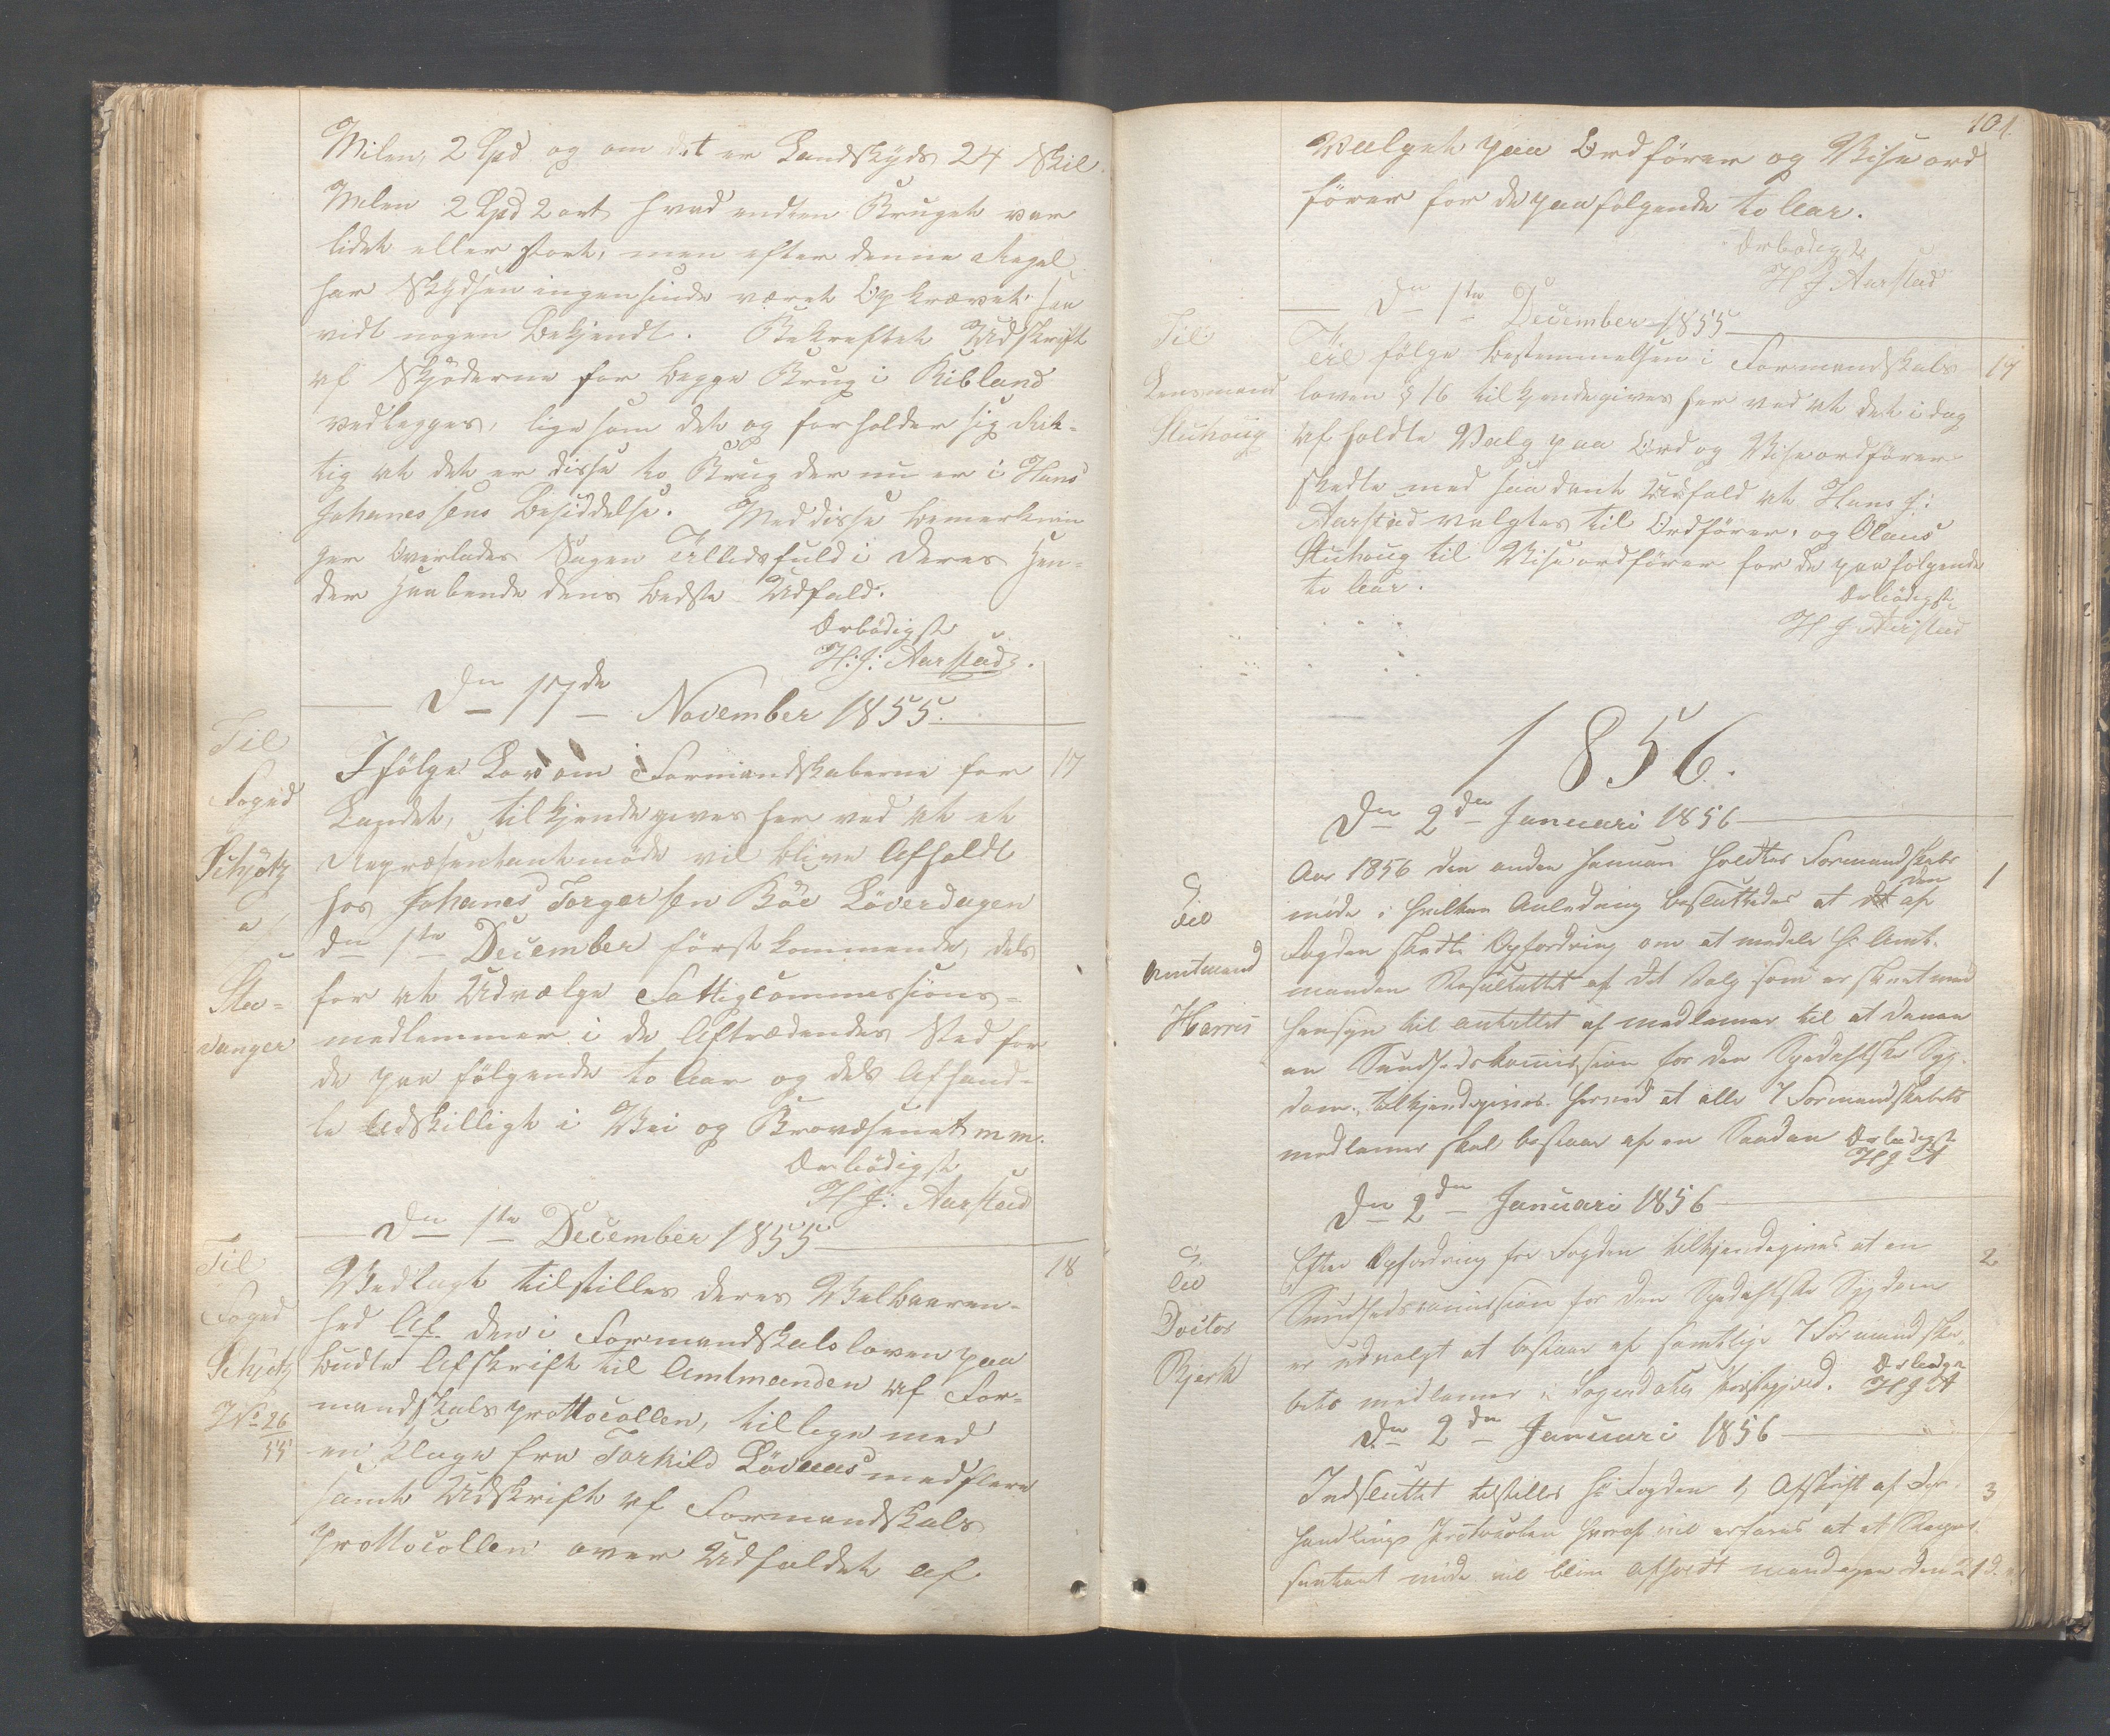 Milen, 2 Spd og om det er Landskyds 24 Skil.
Milen 2 Spd 2 ort hvad endten Bruget var
lidet eller stort, men efter denne Regel
har Skydsen ingensinde været Opkrævet saa
vidt nogen Bekjendt. Bekreftet Udskrift
af Skjøderne for begge Brug i Birkland
vedlegges, ligesom det og forholder sig Rik-
tig at det er disse to Brug der nu er i Hans
Johanessens Besiddelse. Med disse bemerknin
ger Overlades Sagen Tillidsfuld i deres Hen-
der Haabende dens bedste Udfald.
Ærbödigst
H: J: Aarstad.
Dn 17de November 1855.
Til
Foged
Schjötz
a/
Sta-
vanger
Ifölge Lov om Formandskaberne for
17
Landet, tilkjendegives herved at et
Repræsentantmöde vil blive Afholdt
hos Johanes Torgersen Böe Löverdagen
dn 1ste December förstkommende, dels
for at Udvælge Fattigcommissions-
medlemmer i de Aftrædendes Sted for
de paafölgende to Aar og dels Afhand-
le Adskilligt i Vei og Brovæsenet m m.
Ærbödigst
H J: Aarstad
Dn 1ste December 1855
Til
Foged
Schjötz
No 26/55
Vedlagt tilstilles deres Velbaaren-
18
hed Af den i Formandskabsloven paa
budte Afskrift til Amtmanden af For-
mandskabsprottocollen, tillige med
en Klage fra Torkild Lövaas med flere
samt Udskrift af Formandskabs
prottocollen over Udfaldet af
101.
Valget paa Ordförer og Viseord
förer for de paafølgende to Aar.
Ærbødigst
H J Aarstad
Dn 1ste December 1855
Til
Lensmand
Stuhoug
Til følge bestemmelsen i Formandskabs
19
loven § 16 tilkjendegives herved at det i dag
afholdte Valg paa Ord og Viseordförer
skedte med saadant Udfald at Hans J:
Aarstad valgtes til Ordförer, og Olaus
Stuhoug til Viseordförer for de paafølgende
to Aar.
Ærbödigst
H J Aarstad
1856.
Dn 2den Januari 1856
Til
Amtmand
Harris
Aar 1856 den anden Januari holdtes Formandskabs
1
möde i hvilken Anledning besluttedes at den af
Fogden skedte Opfordring om at medele Hr Amt-
manden Resultatet af det Valg som er skeet med
Hensyn til antallet af medlemer til at danne
en Sundhedskomission for den Spedalske Syg-
dom, tilkjendegives herved at alle 7 Formandskabets
medlemer skal bestaae af en Saadan Ærbödigst
H J A
Dn 2den Januari 1856
Til
Doctor
Bjerk
Efter Opfordring fra Fogden tilkjendegives at en
2
Sundhedscomission for den Spedalske Sygdom
er udvalgt at bestaae af samtlige 7 Formandska-
bets medlemer i Præstegjeld. Ærbödigst
H J A
Dn 2den Januari 1856
Indsluttet tilstilles Hr Fogden 1, Afskrift af For-
3
handlings Protocolen hvoraf vil erfares at et Repræ-
sentant möde vil blive afholdt mandagen den 21 d.